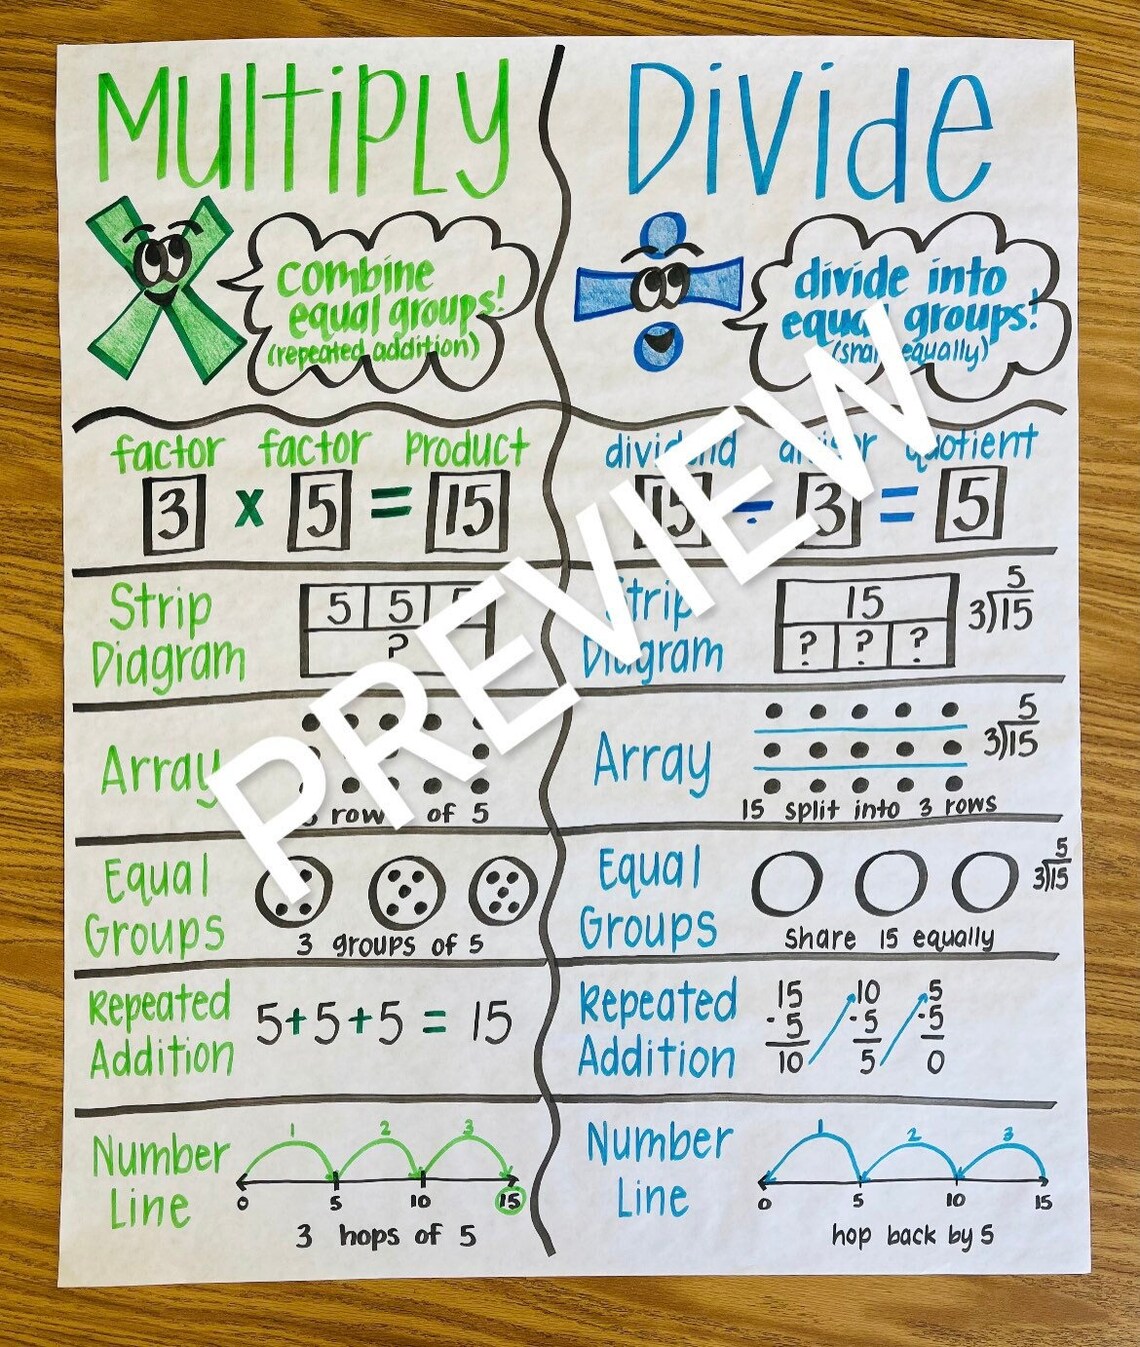 Multiply
combine
equal groups!
(repeated addition)
factor factor product
3 x 5 = 15
Strip
Diagram
5 5
?
Array
of 5
Equal
Groups
3 groups of 5
Repeated
Addition
5+5+5 = 15
Number
Line
1 2 3
0 5 10 15
3 hops of 5
Divide
divide into
equal groups!
equally)
quotient
15 ÷ 3 = 5
Strip
Diagram
15
? ? ?
5
3)15
Array
5
3)15
15 split into 3 rows
Equal
Groups
5
3)15
Share 15 equally
Repeated
Addition
15 10 5
-5 -5 -5
10 5 0
Number
Line
1 2 3
0 5 10 15
hop back by 5
PREVIEW